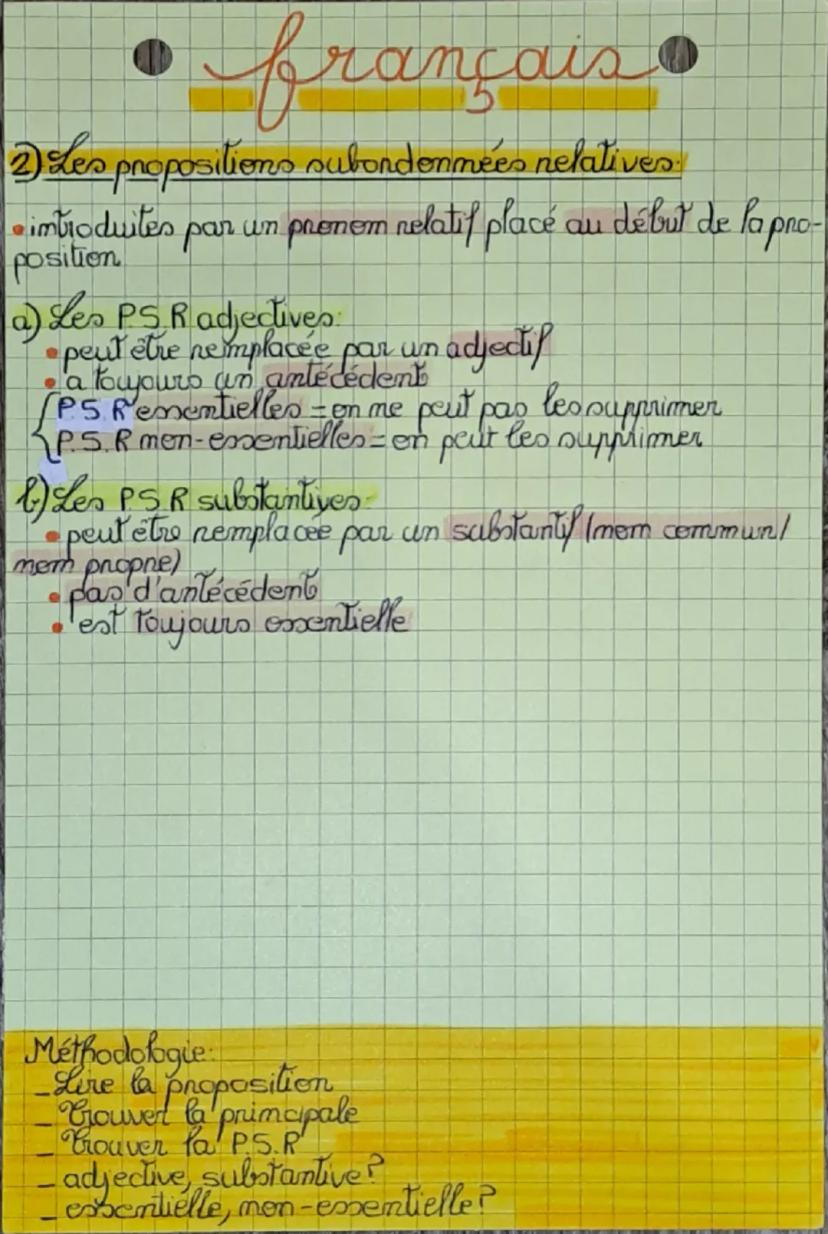 français
2) Les propositions subordonnées relatives:
• introduites par un pronom relatif placé au début de la pro-
position
a) Les P.S.R adjectives:
• peut être remplacée par un adjectif
• a toujours un antécédent
P.S.R essentielles = on ne peut pas les supprimer
P.S.R non-essentielles = on peut les supprimer
b) Les P.S.R substantives:
• peut être remplacée par un substantif (nom commun/
nom propre)
• pas d'antécédent
• est toujours essentielle
Méthodologie:
_ Lire la proposition
_ Trouver la principale
_ Trouver la P.S.R
_ adjective, substantive?
_ essentielle, non-essentielle?